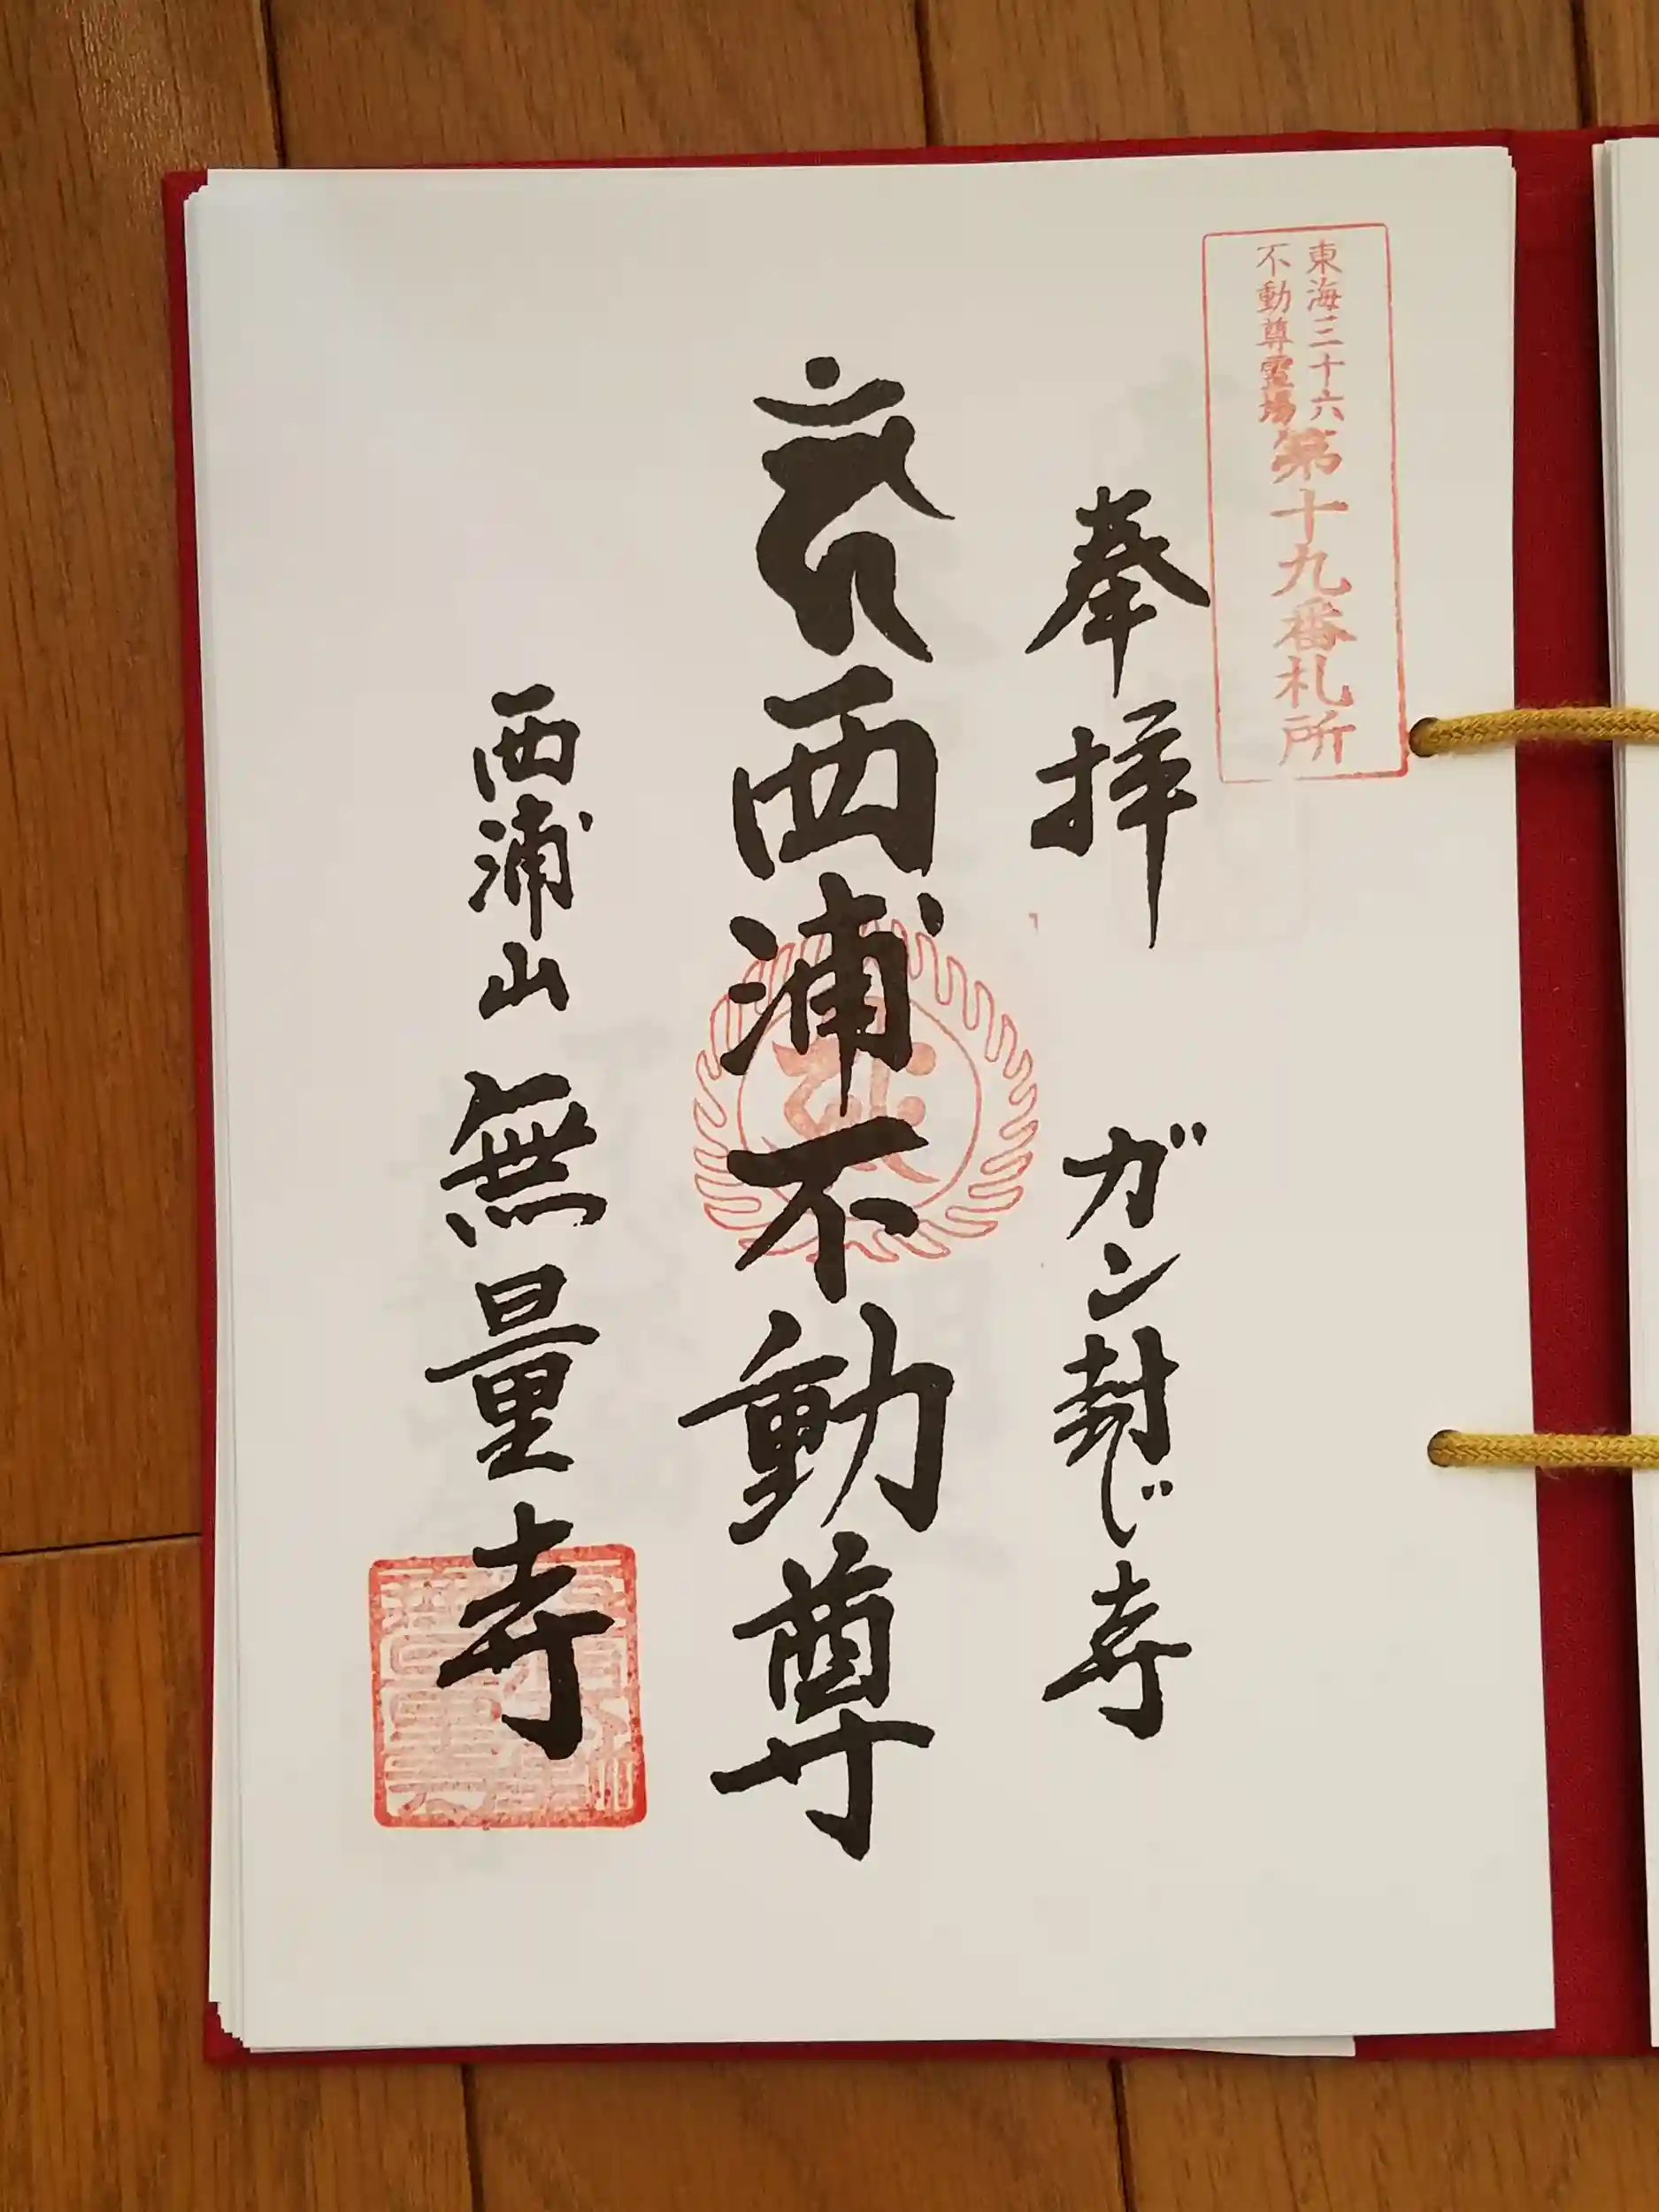 東海三十六
不動尊霊場
第十九番札所
奉拝 ガン封じ寺
西浦不動尊
西浦山 無量寺